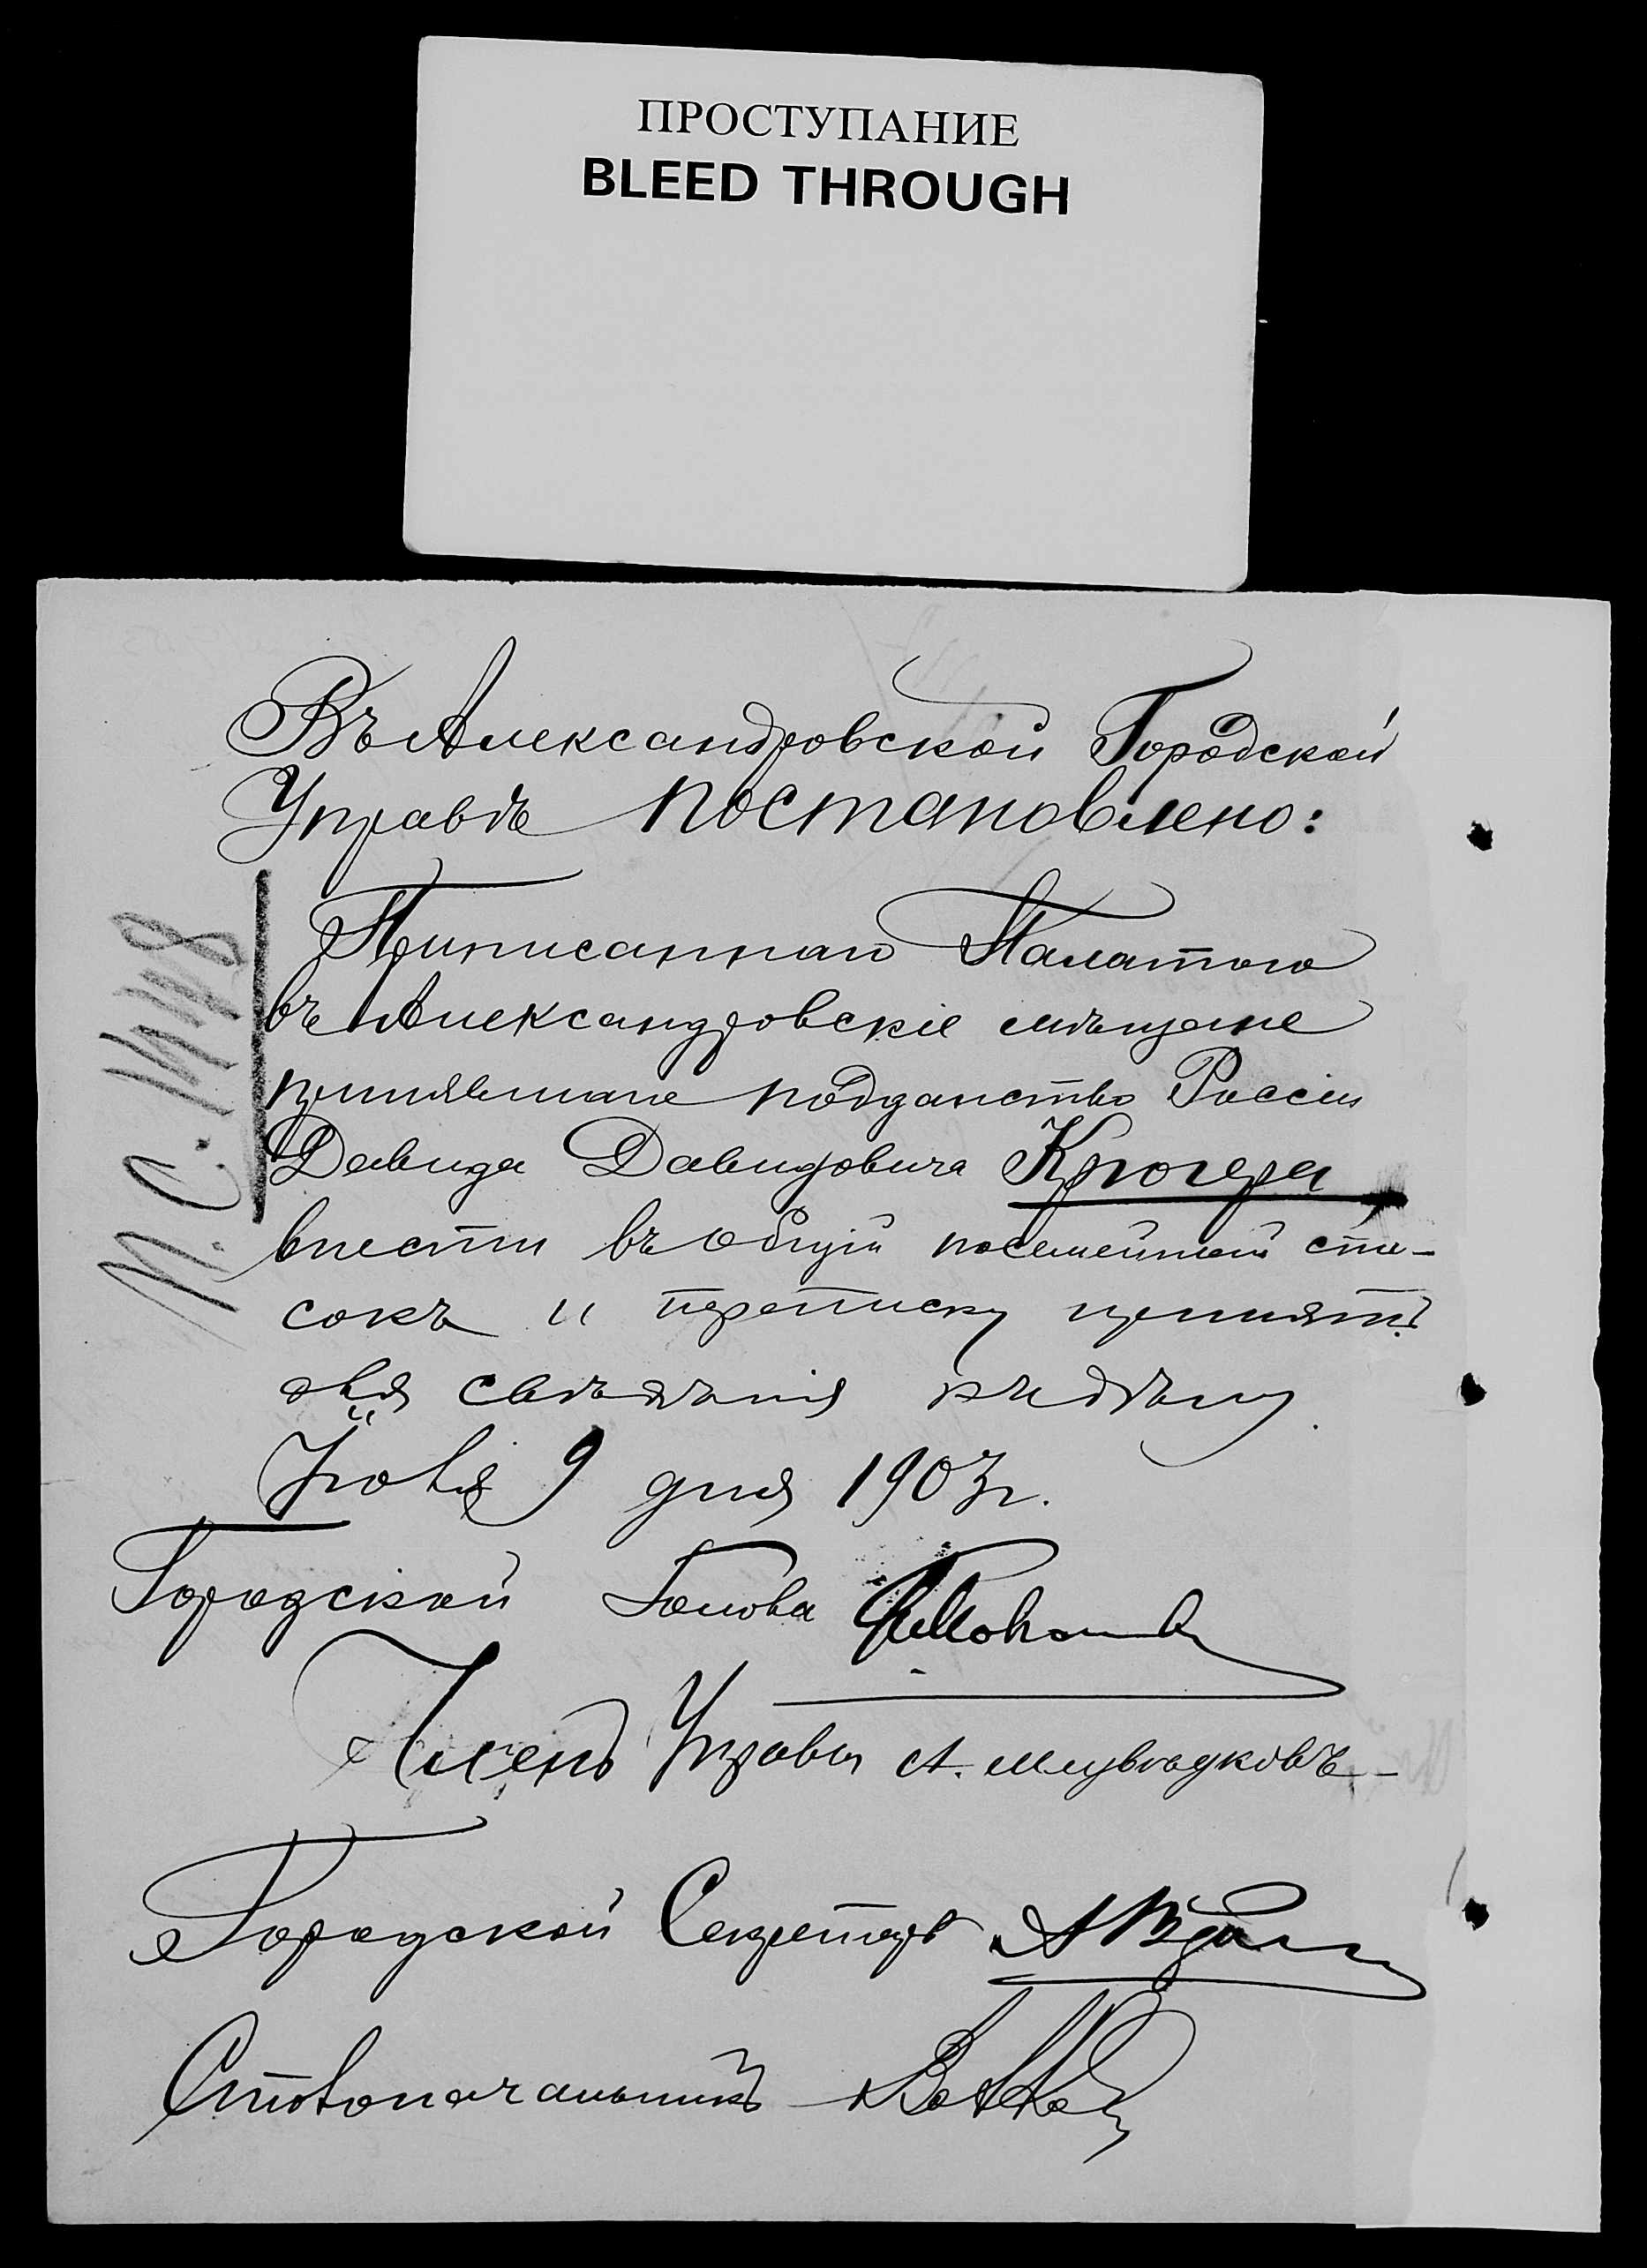 ПРОСТУПАНИЕ
BLEED THROUGH
Въ Александровской Городской
Управѣ постановлено:
Приписаннаго Палатою
въ Александровскіе мѣщане
принявшаго подданство Россіи
Давида Давидовича Крогера
внести въ общій посемейный спи-
сокъ и переписку принять
для свѣдѣнія къ дѣлу.
Іюля 9 дня 1903 г.
Городской Голова
Членъ Управы А.
Городской Секретарь
Столоначальникъ
М.С.